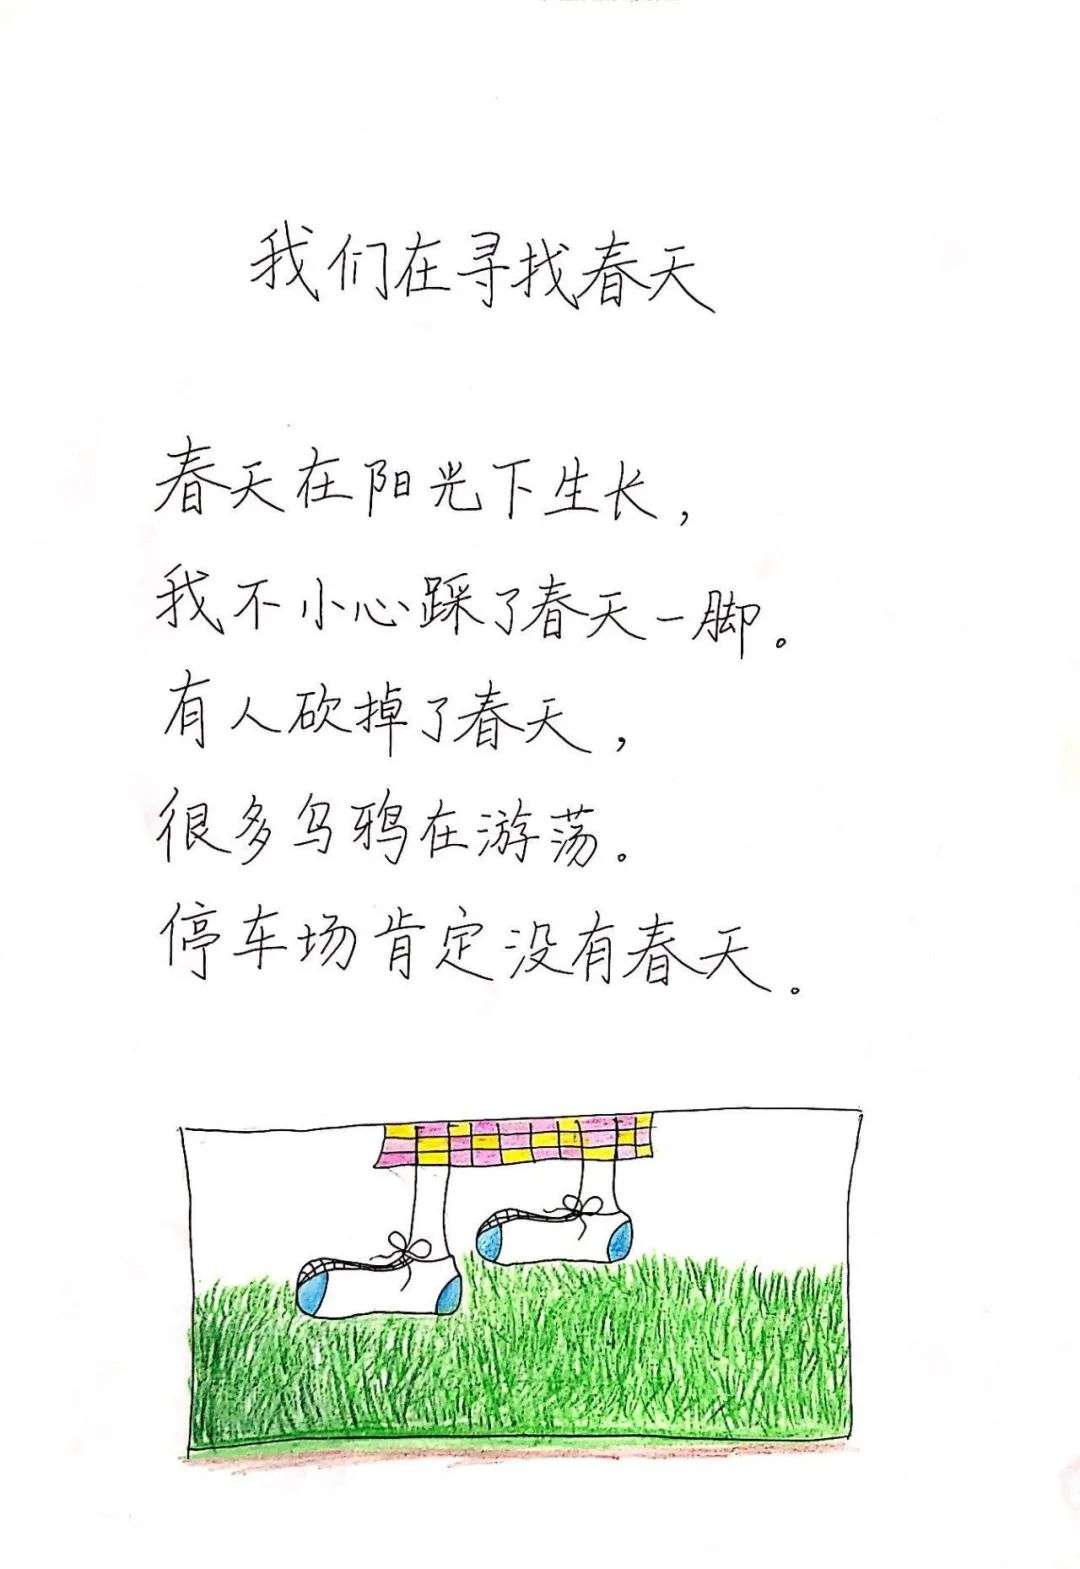 我们在寻找春天
春天在阳光下生长，
我不小心踩了春天一脚。
有人砍掉了春天，
很多乌鸦在游荡。
停车场肯定没有春天。